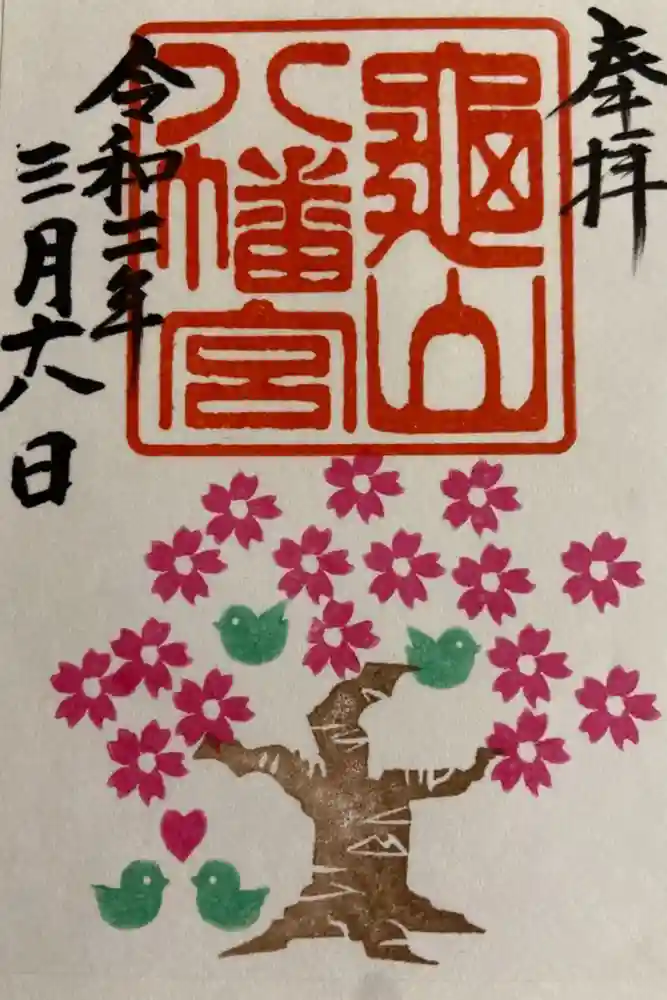 奉拝
亀山
八幡宮
令和三年
三月十八日